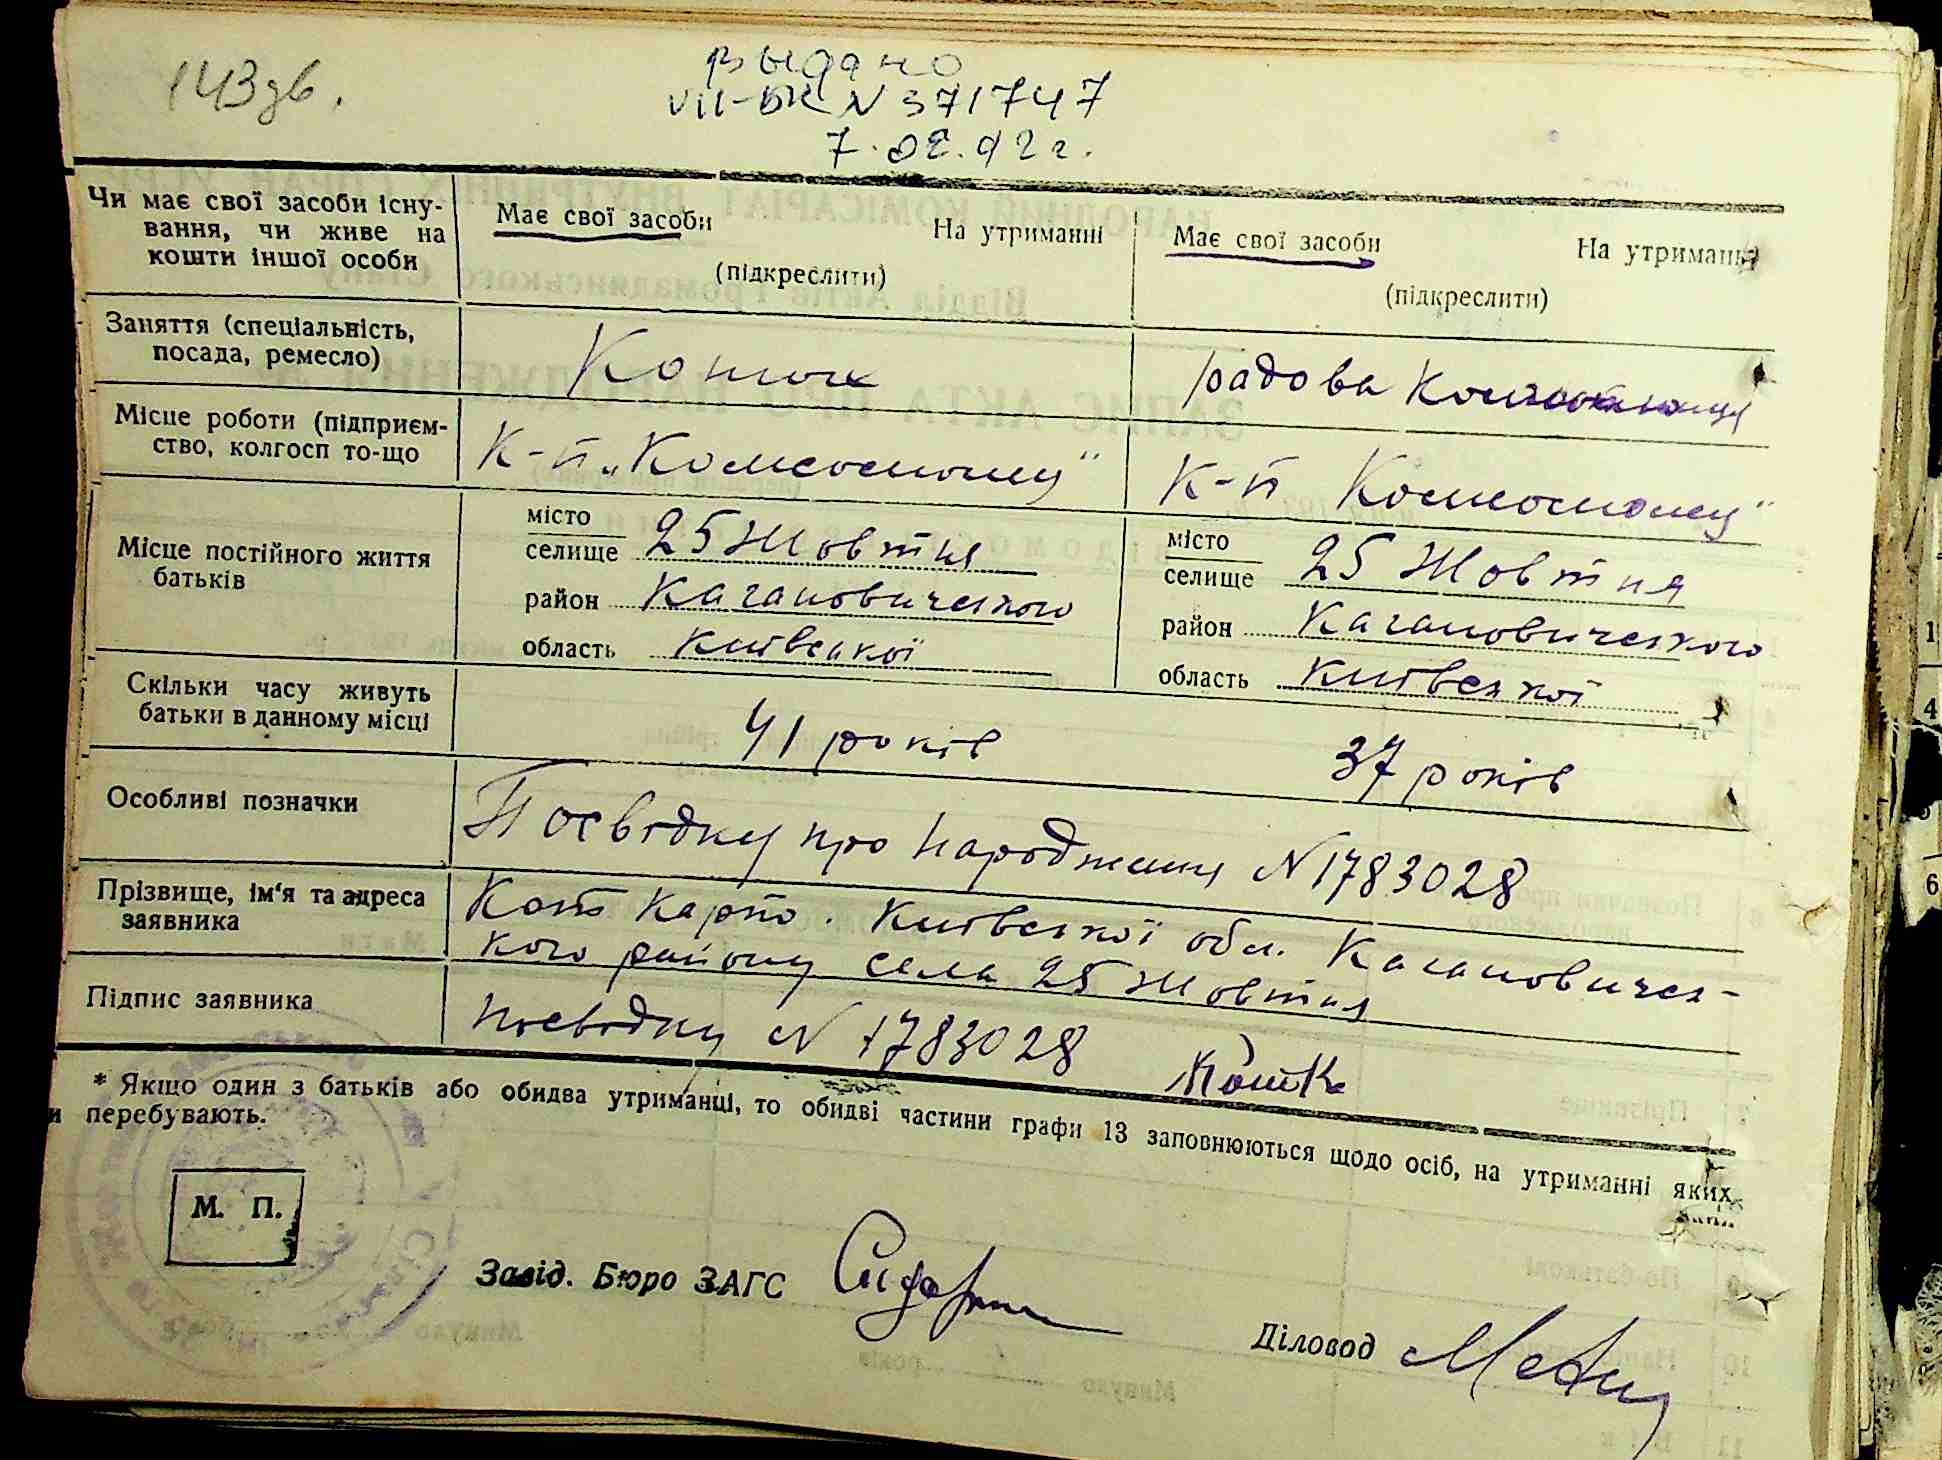 143зв.
выдано
VII-БК N 371747
7.02.92 г.
Чи має свої засоби існу-
вання, чи живе на
кошти іншої особи
Має свої засоби На утриманні
(підкреслити)
Має свої засоби На утриманні
(підкреслити)
Заняття (спеціальність,
посада, ремесло)
Конюх
рядова
Місце роботи (підприєм-
ство, колгосп то-що
К-п „Комсомолец"
К-п Комсомолец"
Місце постійного життя
батьків
місто
селище 25 Жовтня
район Кагановического
область Київської
місто
селище 25 Жовтня
район Кагановического
область Київської
Скільки часу живуть
батьки в данному місці
41 років
37 років
Особливі позначки
Посвідку про народження N 1783028
Прізвище, ім'я та адреса
заявника
Кот Карпо. Київської обл. Кагановичес-
кого району села 25 Жовтня
Підпис заявника
посвідку N 1783028
* Якщо один з батьків або обидва утриманці, то обидві частини графи 13 заповнюються щодо осіб, на утриманні яких
и перебувають.
М. П.
Завід. Бюро ЗАГС
Діловод